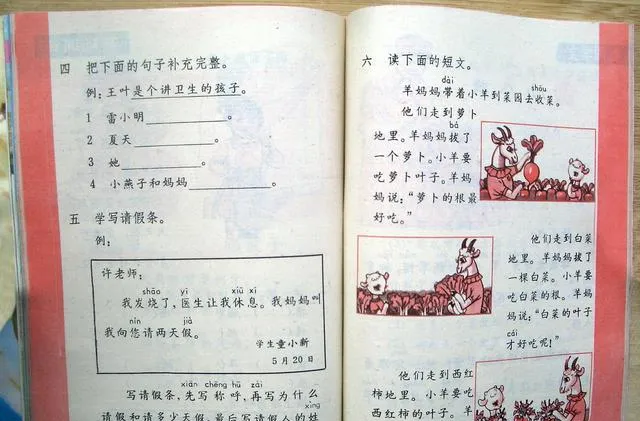 四 把下面的句子补充完整。
例：王叶是个讲卫生的孩子。
1 雷小明＿＿＿＿。
2 夏天＿＿＿＿。
3 她＿＿＿＿。
4 小燕子和妈妈＿＿＿＿。
五 学写请假条。
例：
许老师：
shāo yī xiū xi
我发烧了，医生让我休息。我妈妈叫
nín jià
我向您请两天假。
学生童小新
5月20日
xiàn chēng hū zài
写请假条，先写称呼，再写为什么
xìng
请假和请多少天假，最后写请假人的姓
六 读下面的短文。
dài shōu
羊妈妈带着小羊到菜园去收菜。
他们走到萝卜
bá
地里。羊妈妈拔了
一个萝卜。小羊要
吃萝卜叶子。羊妈
妈说：“萝卜的根最
好吃。”
他们走到白菜
地里。羊妈妈拔了
一棵白菜。小羊要
吃白菜的根。羊妈
妈说：“白菜的叶子
cái
才好吃呢！”
他们走到西红
柿地里。小羊要吃
西红柿的叶子。羊